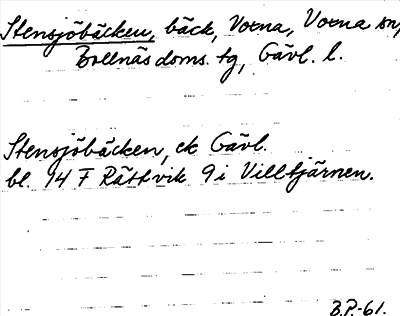 Stensjöbäcken, bäck, Voxna, Voxna sn,
Bollnäs doms. tg, Gävl. l.
Stensjöbäcken, ek Gävl.
bl. 14 F Rättvik 9 i Villtjärnen.
B.P.-61.